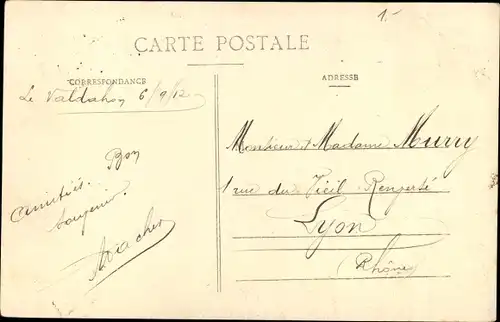 1.-
CARTE POSTALE
CORRESPONDANCE
ADRESSE
Le Valdahon 6/9/12
Monsieur & Madame Murry
1 rue du Vieil Renversé
Lyon
(Rhône)
Bon
Amitiés.
Souvenir.